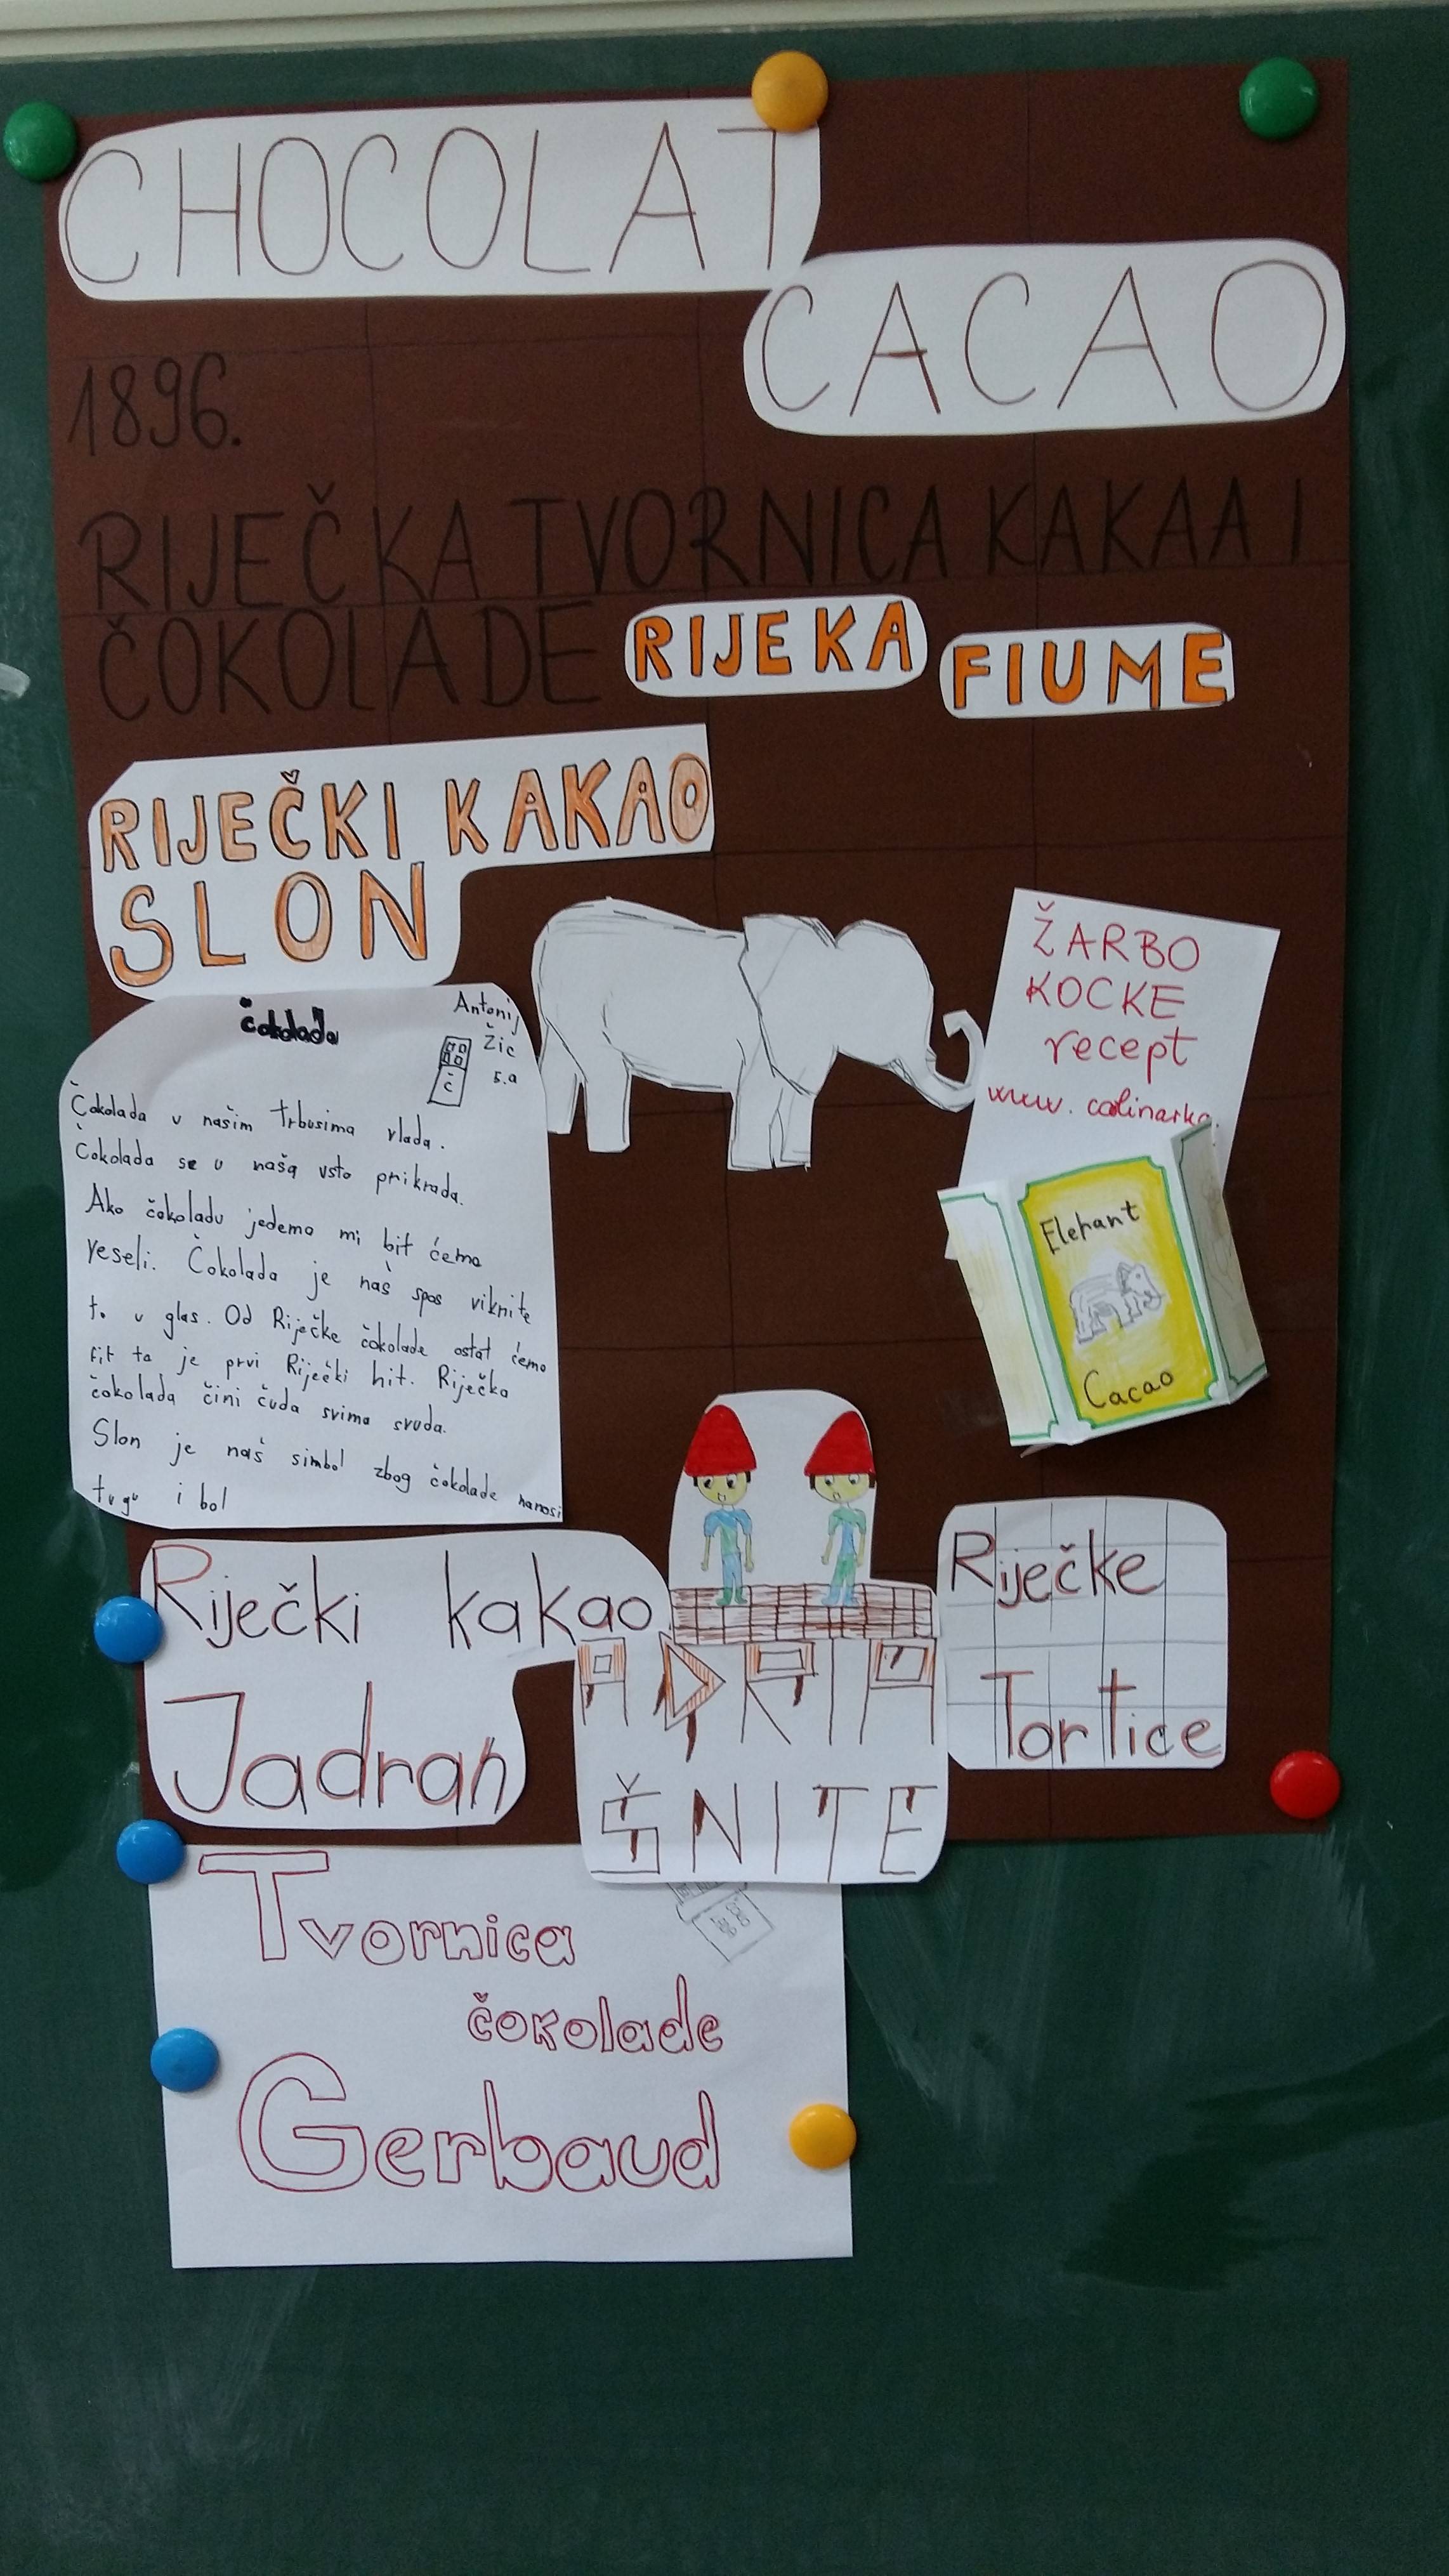 CHOCOLAT
CACAO
1896.
RIJEČKA TVORNICA KAKAA I
ČOKOLADE RIJEKA FIUME
RIJEČKI KAKAO
SLON
čokolada
Antonij
Žic
5.a
Č
Čokolada u našim trbusima vlada.
Čokolada se u naša usta prikrada.
Ako čokoladu jedemo mi bit ćemo
veseli. Čokolada je naš spas viknite
to u glas. Od Riječke čokolade ostat ćemo
fit to je prvi Riječki hit. Riječka
čokolada čini čuda svima svuda.
Slon je naš simbol zbog čokolade nanosi
tugu i bol
ŽARBO
KOCKE
recept
www.coolinarka.
Elephant
Cacao
Riječki kakao
Jadran
ADRIA
ŠNITE
Riječke
Tortice
Tvornica
čokolade
Gerbaud